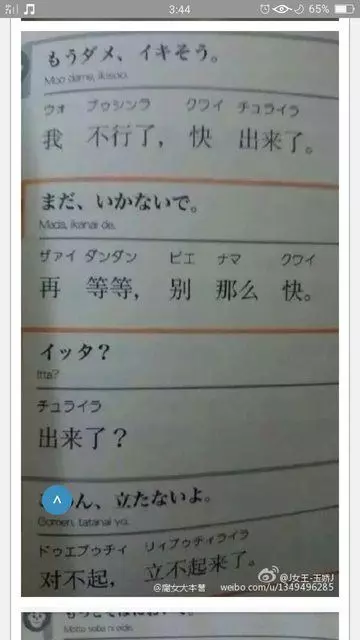 3:44
65%
もうダメ、イキそう。
Moo dame, ikisoo.
ウォ ブゥシンラ クワイ チュライラ
我 不行了， 快 出来了。
まだ、いかないで。
Mada, ikanai de.
ザァイ ダンダン ビエ ナマ クワイ
再 等等， 别 那么 快。
イッタ？
Itta?
チュライラ
出来了？
めん、立たないよ。
Gomen, tatanai yo.
ドゥエブゥチィ リィブゥチィライラ
对不起， 立不起来了。
@J女王-玉娇J
@魔女大本营 weibo.com/u/1349496285